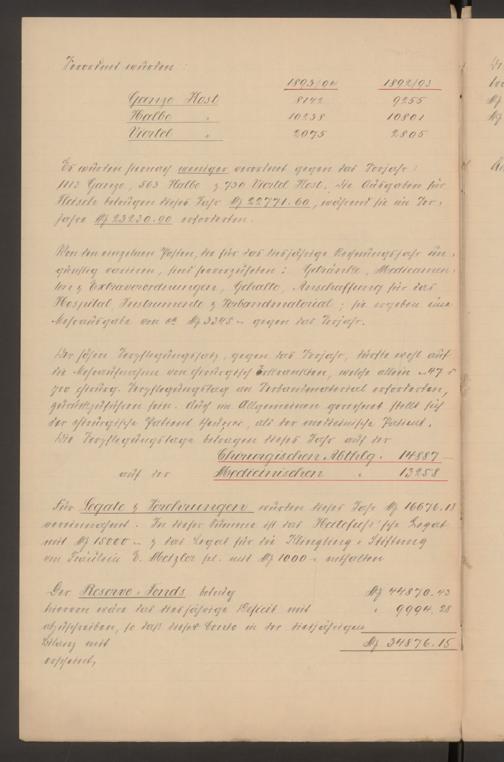 Verordnet wurden:
1893/94 1892/93
Ganze Kost 8142 9255
Halbe " 10238 10801
Viertel " 2075 2805
Es wurden hienach weniger verordnet gegen das Vorjahr:
1113 Ganze, 563 Halbe & 730 Viertel Kost. Die Ausgaben für
Fleisch betrugen dieses Jahr M 22771.60, während sie im Vor-
jahre M 23230.00 erforderten.
Von den einzelnen Posten, die für das diesjährige Rechnungsjahr un-
günstig waren, sind hervorzuheben: Getränke, Medicamen-
te & Extraverordnungen, Gehalte, Anschaffung für das
Hospital, Instrumente & Verbandmaterial; sie ergeben eine
Mehrausgabe von ca. M 3245 gegen das Vorjahr.
Der höhere Verpflegungssatz, gegen das Vorjahr, dürfte wohl auf
die Mehraufnahme von chirurgisch Erkrankten, welche allein
pro chirurg. Verpflegungstag an Verbandmaterial erforderten,
zurückzuführen sein. Auch im Allgemeinen gerechnet stellt sich
der chirurgische Patient theurer, als der medicinische Patient.
Die Verpflegungstage betragen dieses Jahr auf der
Chirurgischen Abthlg. 14887
auf der Medicinischen " 13258
Für Legate & Verehrungen wurden dieses Jahr M 16676.18
vereinnahmt. In dieser Summe ist das Legat
mit M 15000 & das Legat für die Stiftung
von Fräulein E. Metzler sel. mit M 1000 enthalten
Der Reserve-Fonds betrug M 44870.43
hievon wäre das diesjährige Deficit mit " 9994.28
abzuschreiben, so daß dieses Conto in der diesjährigen
Bilanz mit M 34876.15
erscheint,